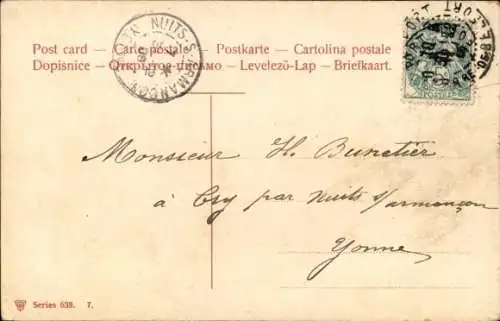 Post card — Carte postale — Postkarte — Cartolina postale
Dopisnice — Открытое письмо — Levelező-Lap — Briefkaart.
NUITS-S-ARMANÇON
BELFORT
Monsieur H. Bunetier
à Cry par Nuits s/armançon
Yonne
Series 638. 7.